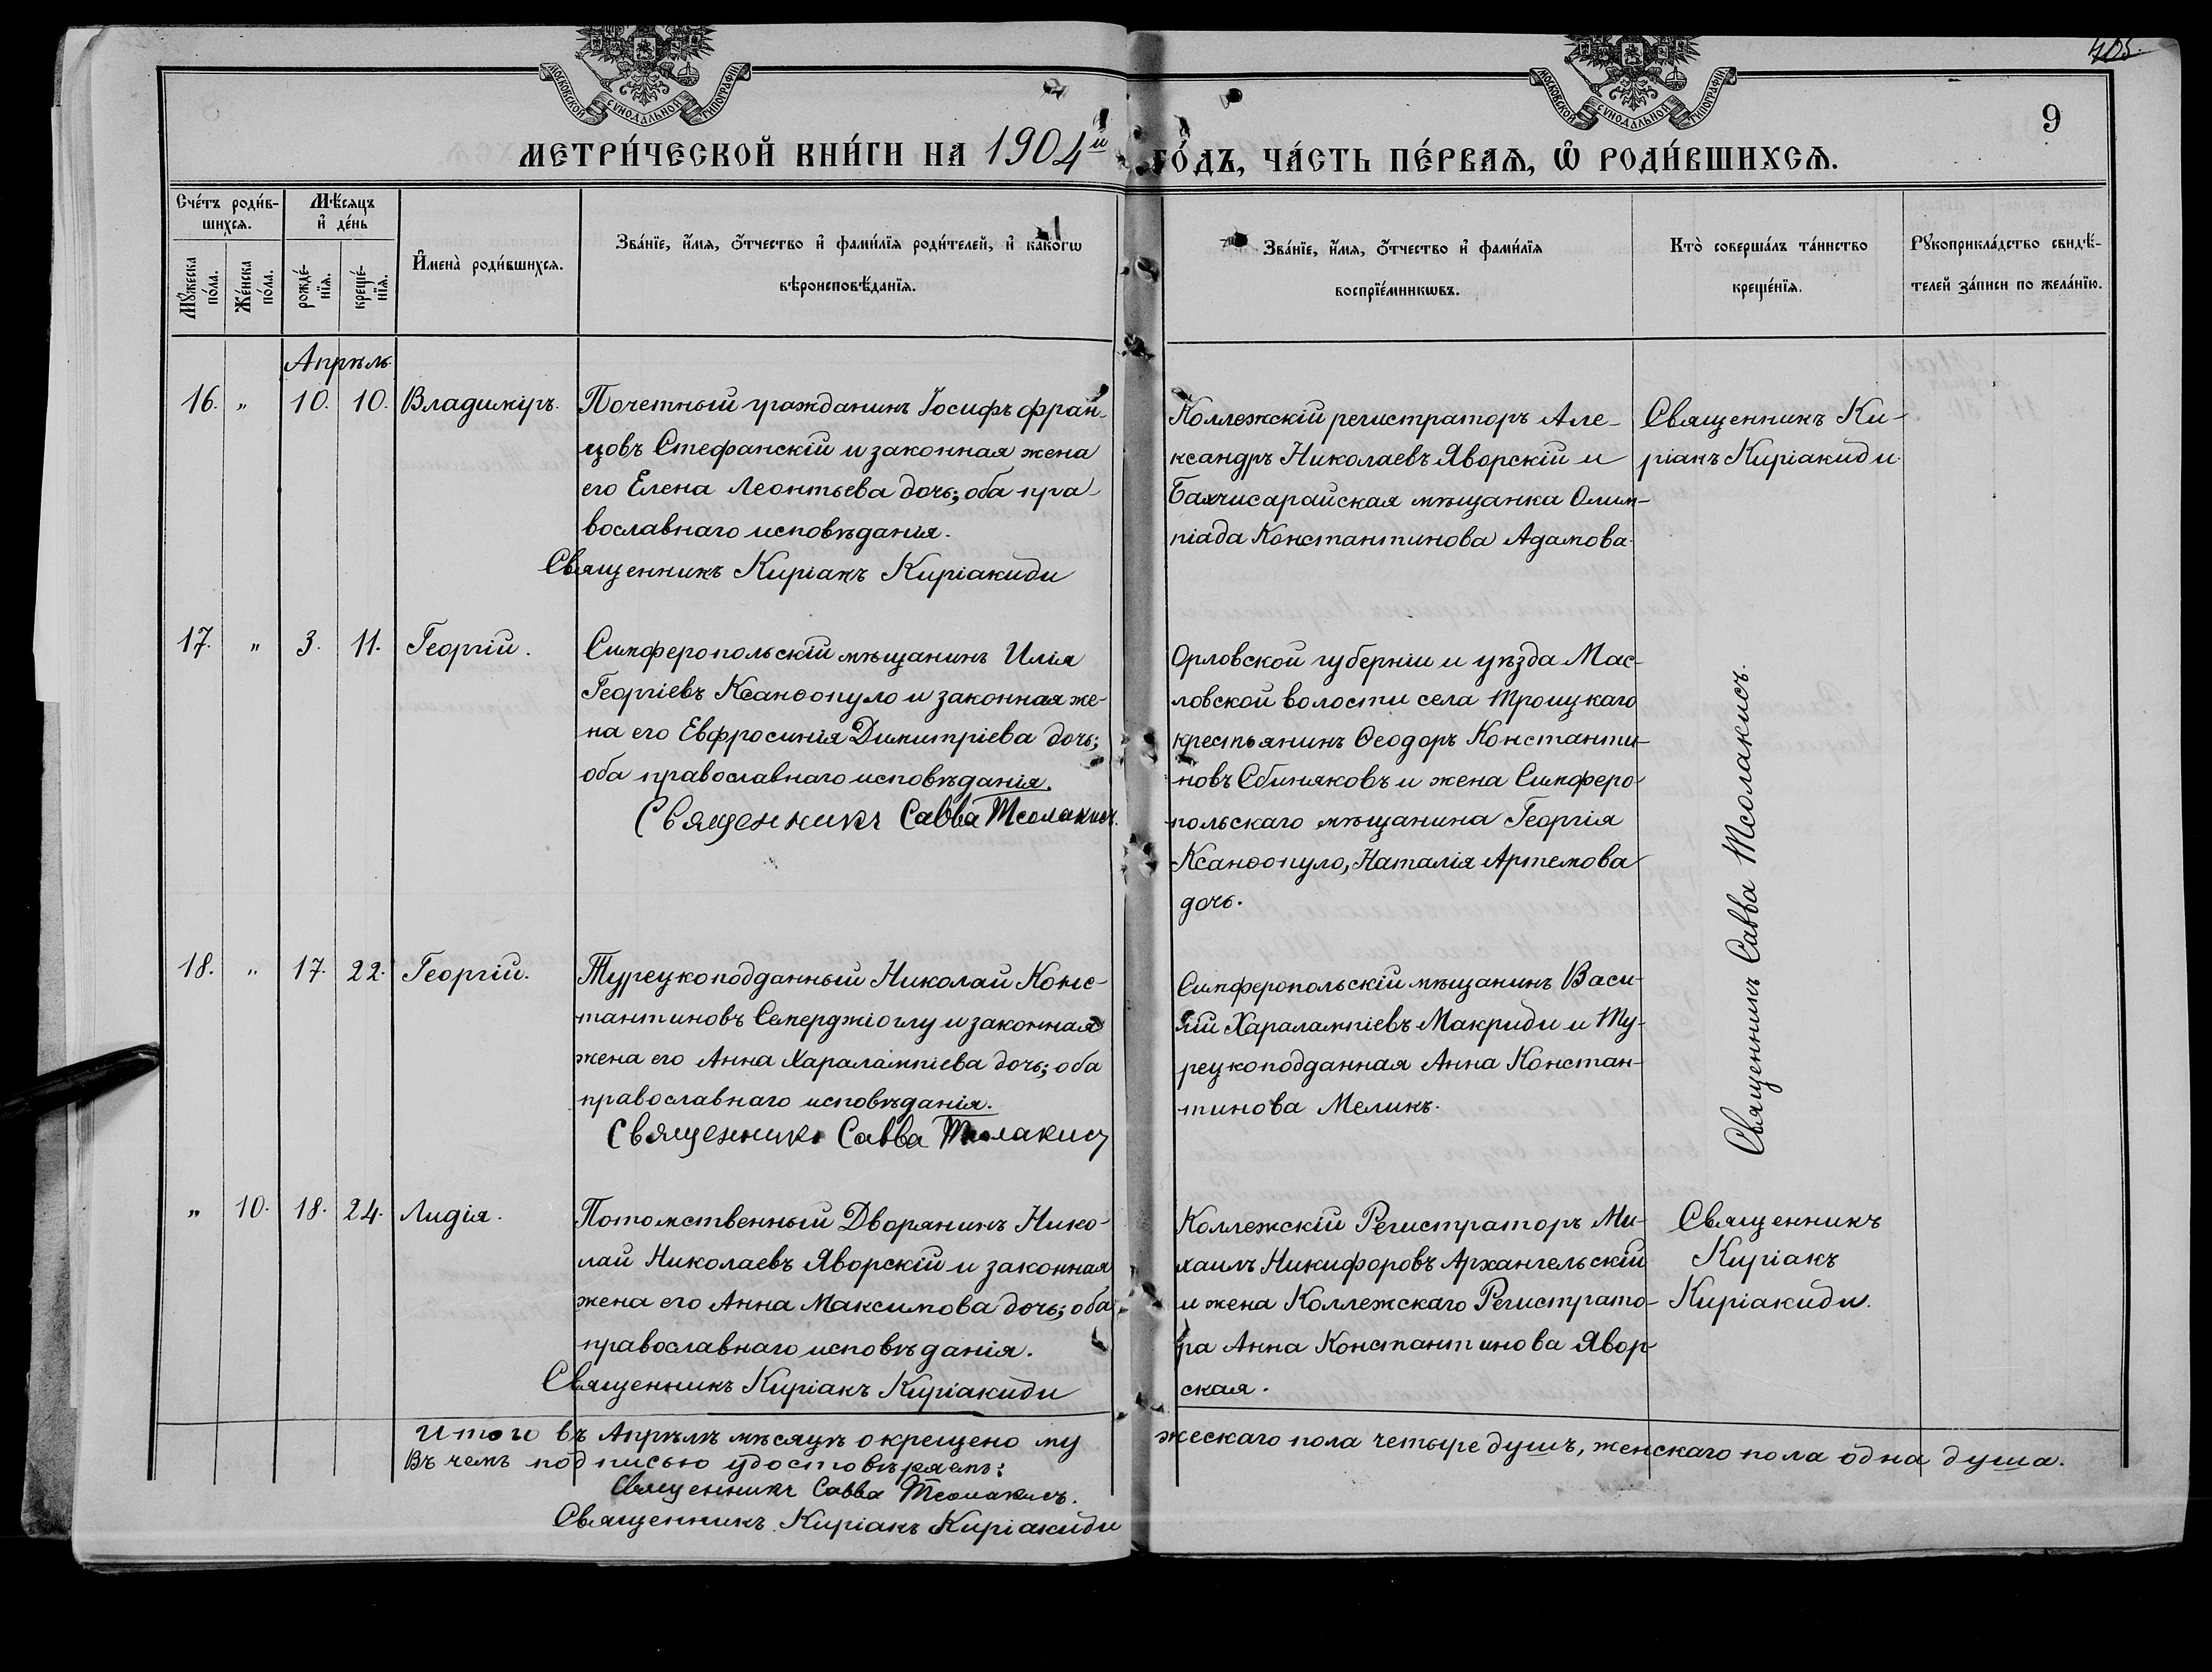 МОСКОВСКОЙ СѴНОДАЛЬНОЙ ТИПОГРАФІИ
МОСКОВСКОЙ СѴНОДАЛЬНОЙ ТИПОГРАФІИ
405.
9
МЕТРИ́ЧЕСКОЙ КНИ́ГИ НА 1904й ГО́ДЪ, ЧА́СТЬ ПЕ́РВАЯ, Ѡ҆ РОДИ́ВШИХСЯ.
Сче́тъ роди́в-
шихся.
Мꙋжеска по́ла.
Же́нска по́ла.
Мѣ́сяцъ
и҆ де́нь
рожде́-
нїя.
креще́-
нїя.
И҆мена̀ роди́вшихся.
Зва́нїе, и҆́мя, ѻ҆́тчество и҆ фами́лїя роди́телей, и҆ како́гѡ
вѣроисповѣ́данїя.
Зва́нїе, и҆́мя, ѻ҆́тчество и҆ фами́лїя
воспрїе́мникѡвъ.
Кто̀ соверша́лъ та́инство
креще́нїя.
Рꙋкоприкла́дство свидѣ́-
телей за́писи по жела́нїю.
Апрѣль.
16. „ 10. 10. Владиміръ.
Почетный гражданинъ Іосифъ Фран-
цовъ Стефанскій и законная жена
его Елена Леонтьева дочь; оба пра-
вославнаго исповѣданія.
Священникъ Киріакъ Киріакиди
Коллежскій регистраторъ Але-
ксандръ Николаевъ Яворскій и
Бахчисарайская мѣщанка Олим-
піада Константинова Адамова.
Священникъ Ки-
ріакъ Киріакиди.
17. „ 3. 11. Георгій.
Симферопольскій мѣщанинъ Илія
Георгіевъ Ксанѳопуло и законная же-
на его Евфросинія Димитріева дочь;
оба православнаго исповѣданія.
Священникъ Савва Тсолакисъ.
Орловской губерніи и уѣзда Мас-
ловской волости села Троицкаго
крестьянинъ Ѳеодоръ Константи-
новъ Сбиняковъ и жена Симферо-
польскаго мѣщанина Георгія
Ксанѳопуло, Наталія Артемова
дочь.
Священникъ Савва Тсолакисъ.
18. „ 17. 22. Георгій.
Турецкоподданный Николай Конс-
тантиновъ Семерджіоглу и законная
жена его Анна Харалампіева дочь; оба
православнаго исповѣданія.
Священникъ Савва Тсолакисъ
Симферопольскій мѣщанинъ Васи-
лій Харалампіевъ Макриди и Ту-
рецкоподданная Анна Констан-
тинова Меликъ.
„ 10. 18. 24. Лидія.
Потомственный Дворянинъ Нико-
лай Николаевъ Яворскій и законная
жена его Анна Максимова дочь; оба
православнаго исповѣданія.
Священникъ Киріакъ Киріакиди
Коллежскій Регистраторъ Ми-
хаилъ Никифоровъ Архангельскій
и жена Коллежскаго Регистрато-
ра Анна Константинова Явор-
ская.
Священникъ
Киріакъ
Киріакиди.
Итого въ Апрѣлѣ мѣсяцѣ окрещено му
жескаго пола четыре душъ, женскаго пола одна душа.
Въ чемъ подписью удостовѣряемъ:
Священникъ Савва Тсолакисъ.
Священникъ Киріакъ Киріакиди